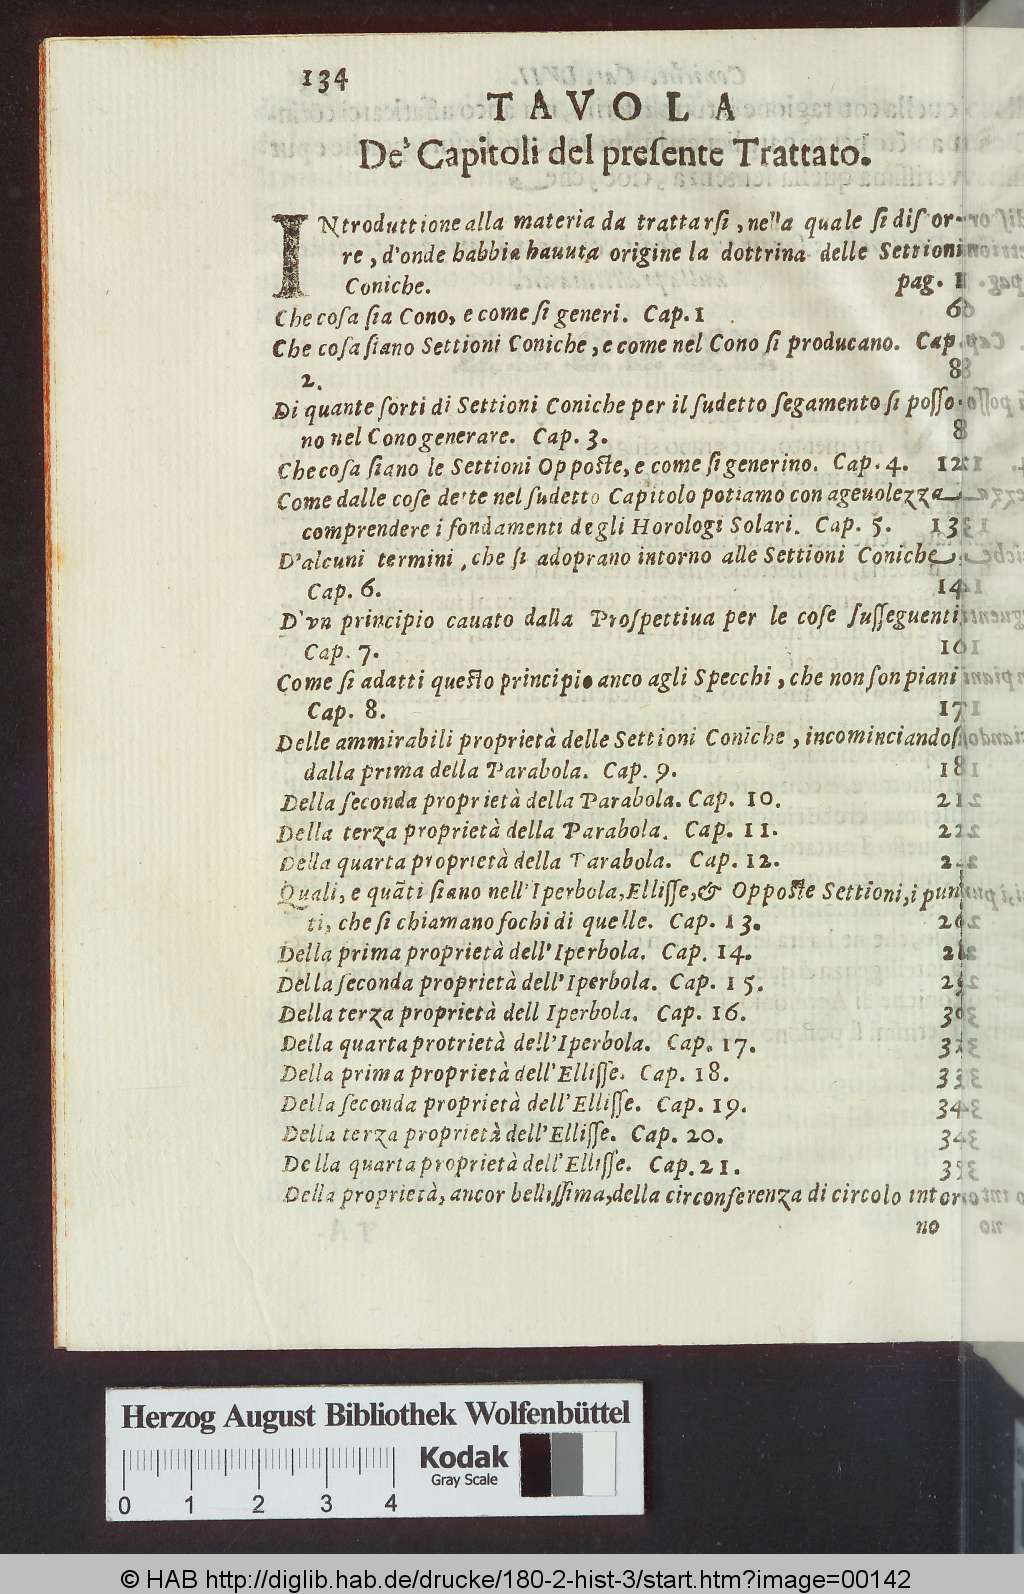 134
TAVOLA
De' Capitoli del presente Trattato.
INtroduttione alla materia da trattarsi, nella quale si discor-
re, d'onde habbia hauuta origine la dottrina delle Settioni
Coniche. pag. 1
Che cosa sia Cono, e come si generi. Cap. 1 6
Che cosa siano Settioni Coniche, e come nel Cono si producano. Cap.
2. 8
Di quante sorti di Settioni Coniche per il sudetto segamento si posso-
no nel Cono generare. Cap. 3. 8
Che cosa siano le Settioni Opposte, e come si generino. Cap. 4. 12
Come dalle cose dette nel sudetto Capitolo potiamo con ageuolezza
comprendere i fondamenti degli Horologi Solari. Cap. 5. 13
D'alcuni termini, che si adoprano intorno alle Settioni Coniche
Cap. 6. 14
D'vn principio cauato dalla Prospettiua per le cose susseguenti
Cap. 7. 16
Come si adatti questo principio anco agli Specchi, che non son piani
Cap. 8. 17
Delle ammirabili proprietà delle Settioni Coniche, incominciandosi
dalla prima della Parabola. Cap. 9. 18
Della seconda proprietà della Parabola. Cap. 10. 21
Della terza proprietà della Parabola. Cap. 11. 22
Della quarta proprietà della Parabola. Cap. 12.
Quali, e quãti siano nell'Iperbola, Ellisse, & Opposte Settioni, i pun-
ti, che si chiamano fochi di quelle. Cap. 13. 26
Della prima proprietà dell'Iperbola. Cap. 14. 28
Della seconda proprietà dell'Iperbola. Cap. 15. 29
Della terza proprietà dell Iperbola. Cap. 16. 30
Della quarta protrietà dell'Iperbola. Cap. 17. 32
Della prima proprietà dell'Ellisse. Cap. 18. 33
Della seconda proprietà dell'Ellisse. Cap. 19. 34
Della terza proprietà dell'Ellisse. Cap. 20. 34
Della quarta proprietà dell'Ellisse. Cap. 21. 35
Della proprietà, ancor bellissima, della circonferenza di circolo intor-
no
Herzog August Bibliothek Wolfenbüttel
Kodak
Gray Scale
0 1 2 3 4
© HAB http://diglib.hab.de/drucke/180-2-hist-3/start.htm?image=00142